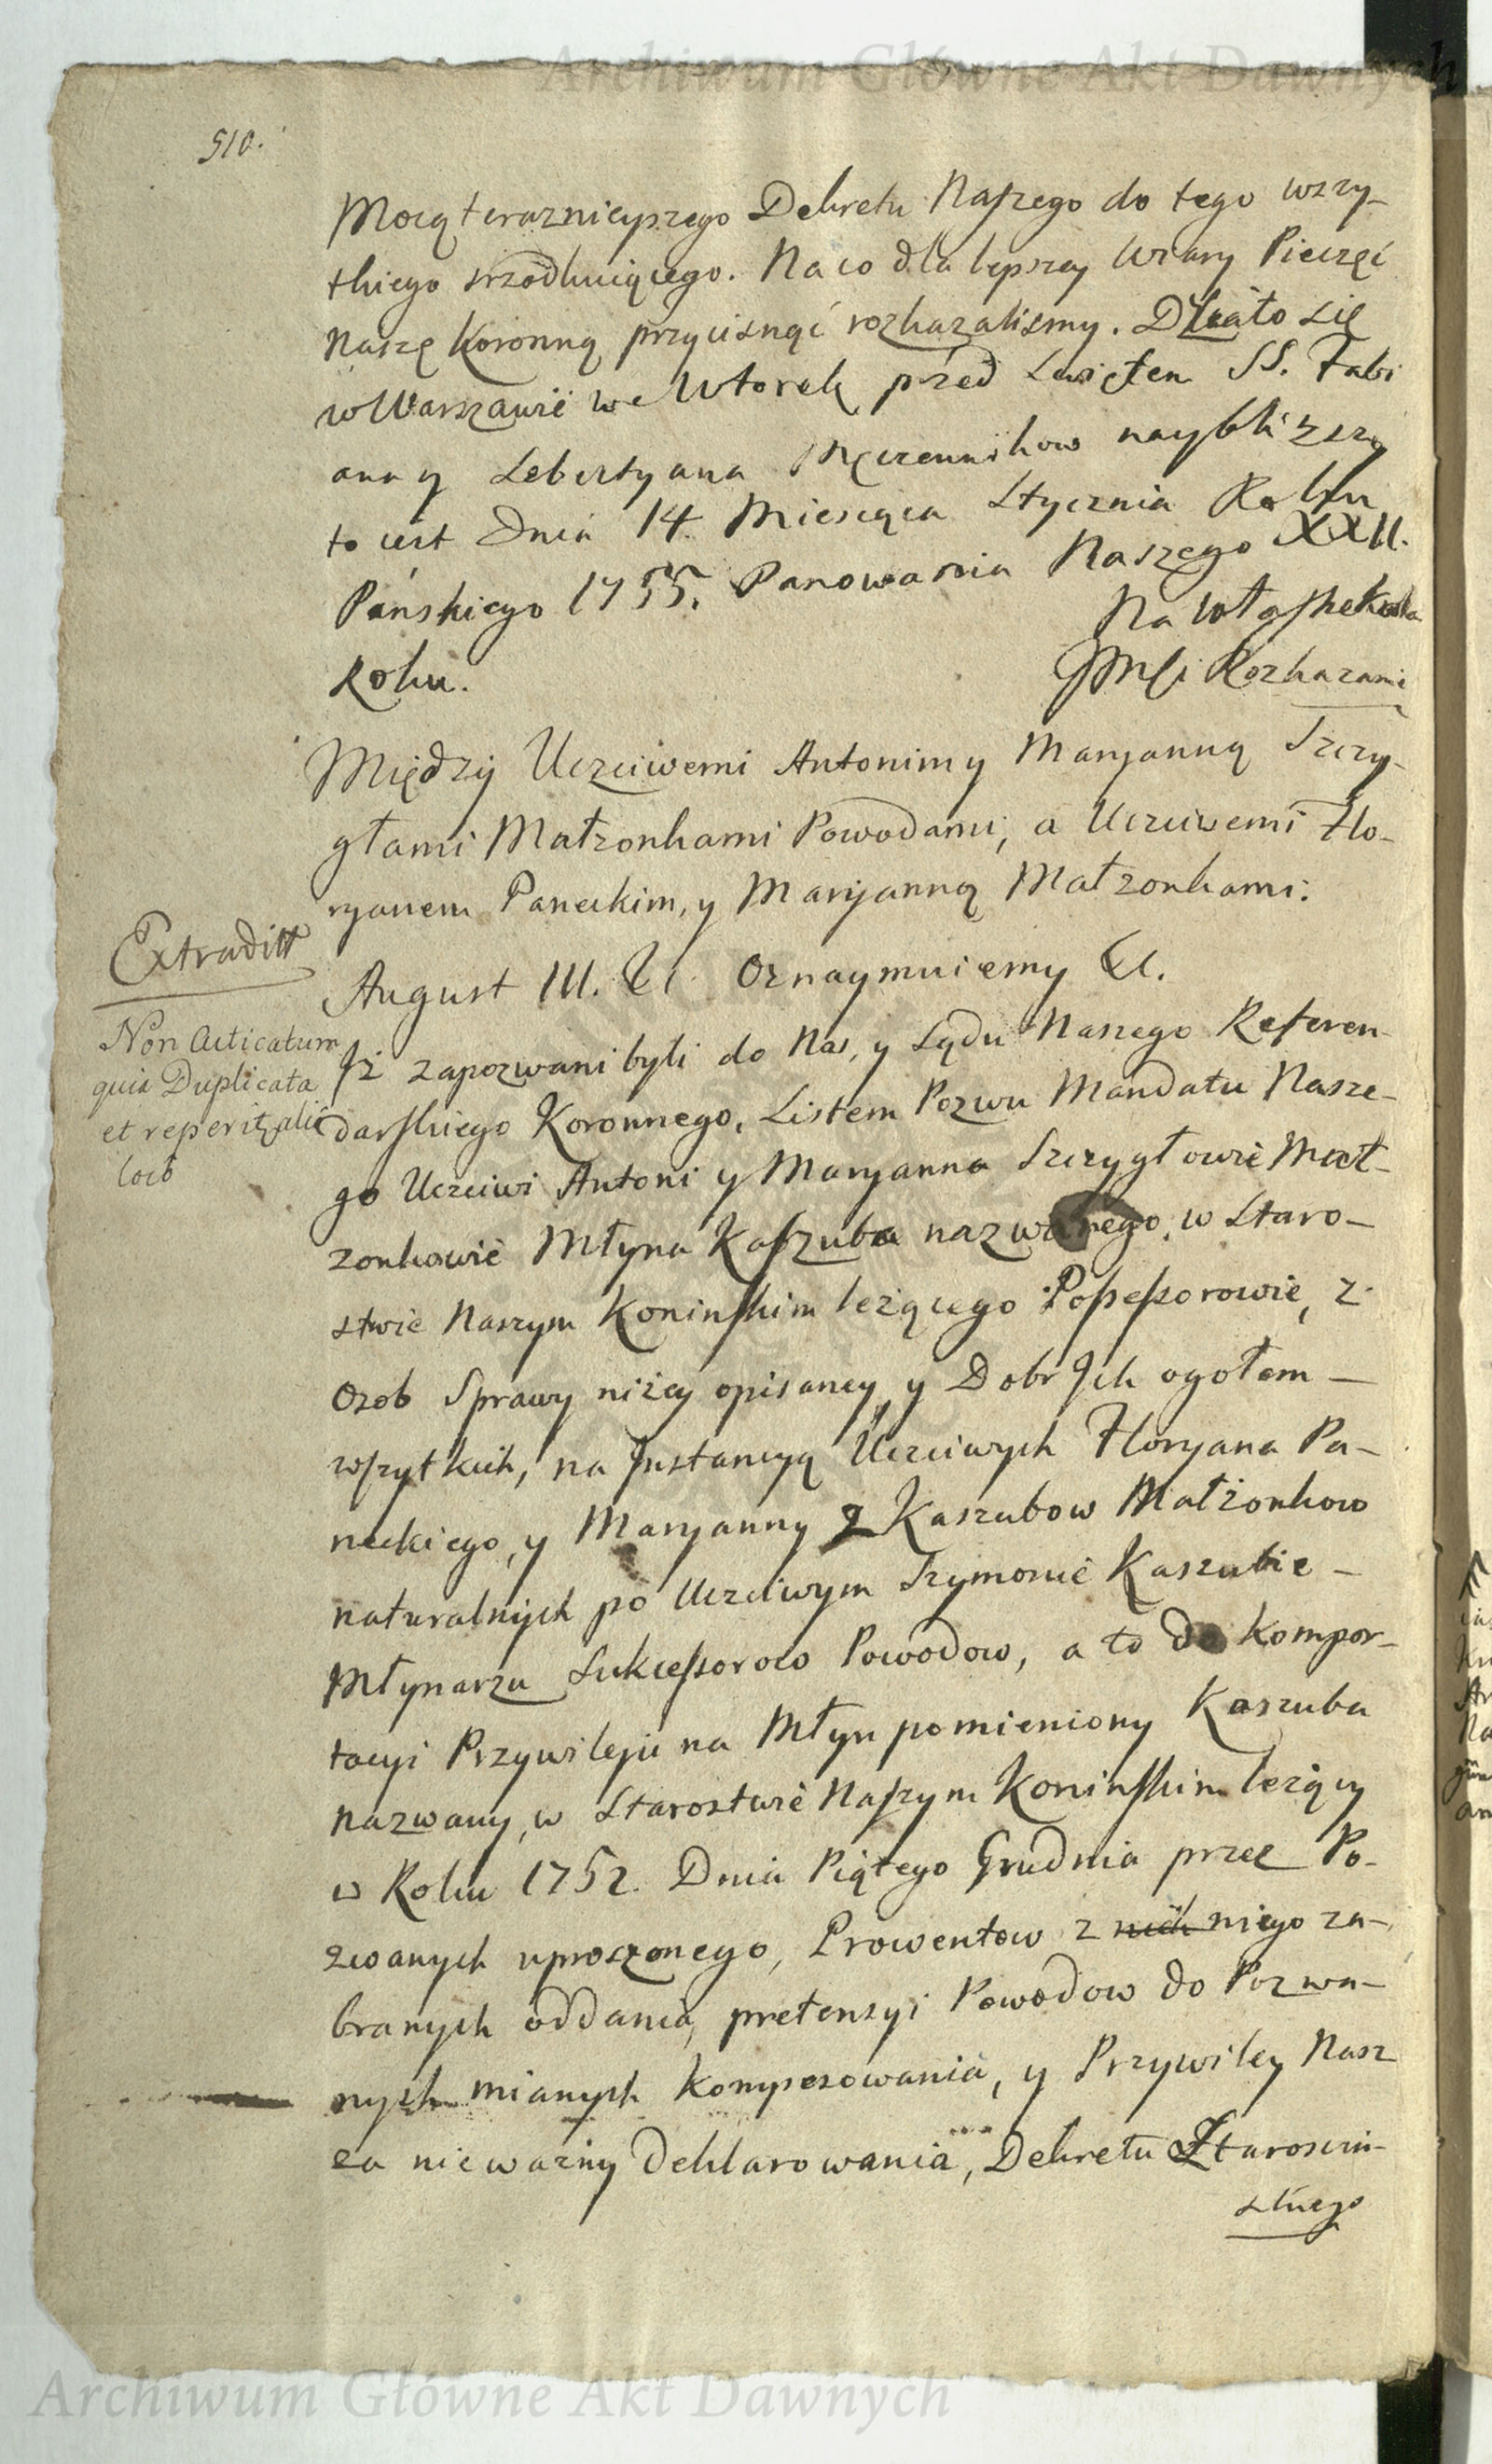 Archiwum Główne Akt Dawnych
510.
Mocą teraznieyszego Dekretu Naszego do tego wszy-
tkiego srzodkuiącego. Na co dla lepszey Wiary Pieczęć
Naszę Koronną przycisnąć rozkazalismy. Działo się
w Warszawie we Wtorek przed Swiętem SS. Fabi
ana y Sebestyana Męczennikow naybliższy
to iest Dnia 14. Miesiąca Stycznia Roku
Pańskiego 1755. Panowania Naszego XXII.
Roku.
Na Własne Krola
JMCi Rozkazani
Między Uczciwemi Antonim y Maryanną Szczy-
głami Małzonkami Powodami, a Uczciwemi Flo-
ryanem Paneckim, y Maryanną Małzonkami.
August III. &c. Oznaymuiemy &c.
Iż zapozwani byli do Nas, y Sądu Naszego Referen-
darskiego Koronnego, Listem Pozwu Mandatu Nasze-
go Uczciwi Antoni y Maryanna Szczygłowie Mał-
zonkowie Młyna Kaszuba nazwanego, w Staro-
stwie Naszym Koninskim leżącego Possessorowie, z
Ozob Sprawy niżey opisaney, y Dobr Ich ogołem
wszytkich, na Instancyą Uczciwych Floryana Pa-
neckiego, y Maryanny z Kaszubow Małżonkow
naturalnych po Uczciwym Szymonie Kaszubie
Młynarzu Sukcessorow Powodow, a to do kompor-
tacyi Przywileju na Młyn pomieniony Kaszuba
nazwany, w Starostwie Naszym Koninskim leżący
w Roku 1752. Dnia Piątego Grudnia przez Po-
zwanych uproszonego, Prowentow z nich niego za-
branych oddania, pretensyi Powodow do Pozwa-
nych mianych kompesowania, y Przywiley Nasz
za nieważny deklarowania, Dekretu Starosciń-
skiego
Extraditt
Non Acticatum
quia Duplicata
et reperit alio
loco
Archiwum Główne Akt Dawnych